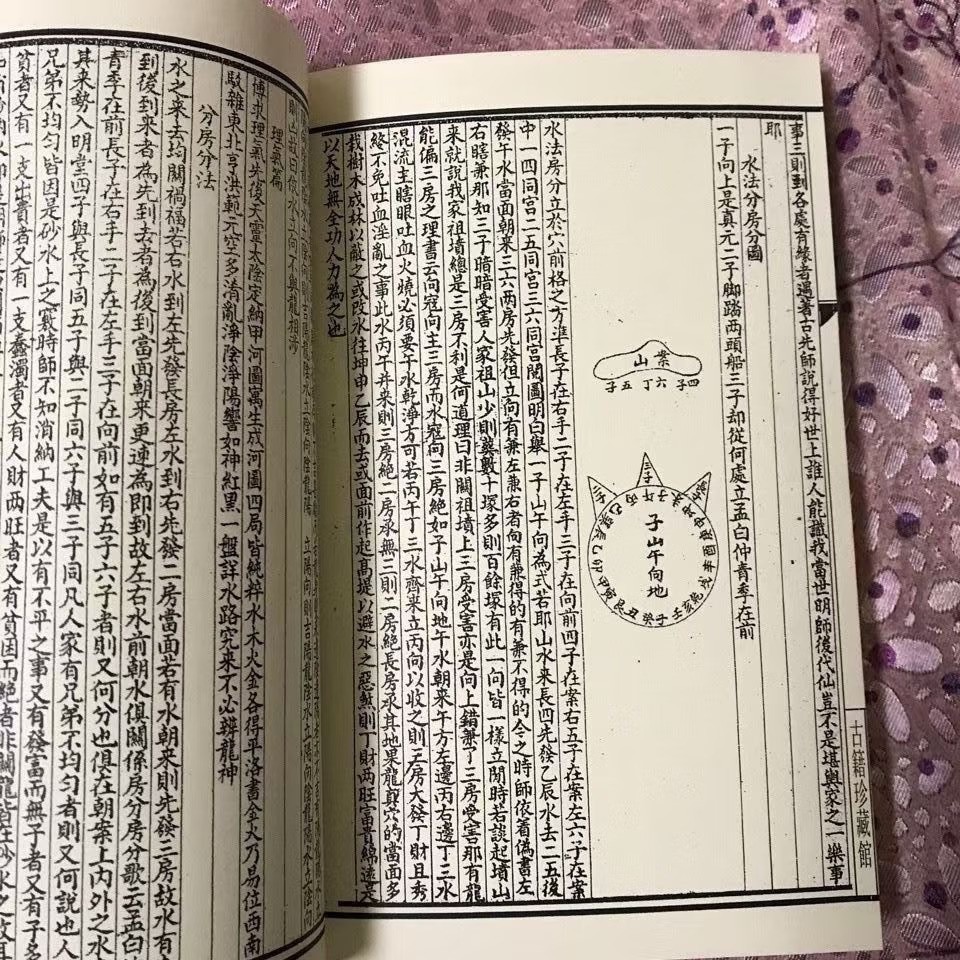 事三則到各處有緣者遇著古先師說得好世上誰人能識我當世明師後代仙豈不是堪輿家之一樂事
耶
水法分房分圖
一子向上是真元二子脚踏两頭船三子却從何處立孟白仲青季在前
案山
四子六丁五子
三子
子山午向地
水法房分立於穴前格之方準長子在右手二子在左手三子在向前四子在案右五子在案左六子在案
中一四同宮二五同宮三六同宮閱圖明白舉一子山午向為式若耶山水来長四先發乙辰水去二五後
發午水當面朝来三六两房先發但立向有兼左兼右者向有兼得的有兼不得的今之時師依着偽書左
右瞎兼那知三子暗暗受害人家祖山少則葬數十塚多則百餘塚有此一向皆一樣立閒時若談起墳山
来就說我家祖墳總是三房不利是何道理曰非關祖墳上三房受害亦是向上錯兼了三房受害那有龍
能偏三房之理書云向寇向主三房而水寇向三房絶如子山午向地午水朝来午方左邊丙右邊丁三水
混流主瞎眼吐血火燒必須要午水乾淨方可若丙午丁三水齊来立丙向以收之則三房大發丁財且秀
終不免吐血淫亂之事此水丙午并来則三房絶一房承無三則二房絶長房承其地果龍真穴的當面多
栽樹木成林以蔽之或改水往坤申乙辰而去或面前作起高堤以避水之惡煞則丁財两旺富貴綿遠矣
以天地無全功人力為之也
古籍珍藏館
理氣篇
傳求理氣先後天靈太陰定納甲河圖寓生成河圖四局皆純粹水木火金各得平洛書金火乃易位西南
駁雜東北亨洪範元空多清亂淨陰淨陽響如神紅黑一盤詳水路究来不必辨龍神
分房分法
水之来去均關禍福若右水到左先發長房左水到右先發二房當面若有水朝来則先發三房故水有
到後到来者為先到去者為後到當面朝来更速為即到故左右水前朝水俱關係房分房分歌云孟白
青季在前長子在右手二子在左手三子在向前如有五子六子者則又何分也俱在朝案上内外之水
其来勢入明堂四子與長子同五子與二子同六子與三子同凡人家有兄弟不均匀者則又何說也人
兄弟不均匀皆因是砂水上之竅時師不知消納工夫是以有不平之事又有發富而無子者又有子多
貧者又有一支出賣者又有一支蠢濁者又有人財两旺者又有貧困而絶者非關龍皆在砂水之故耳